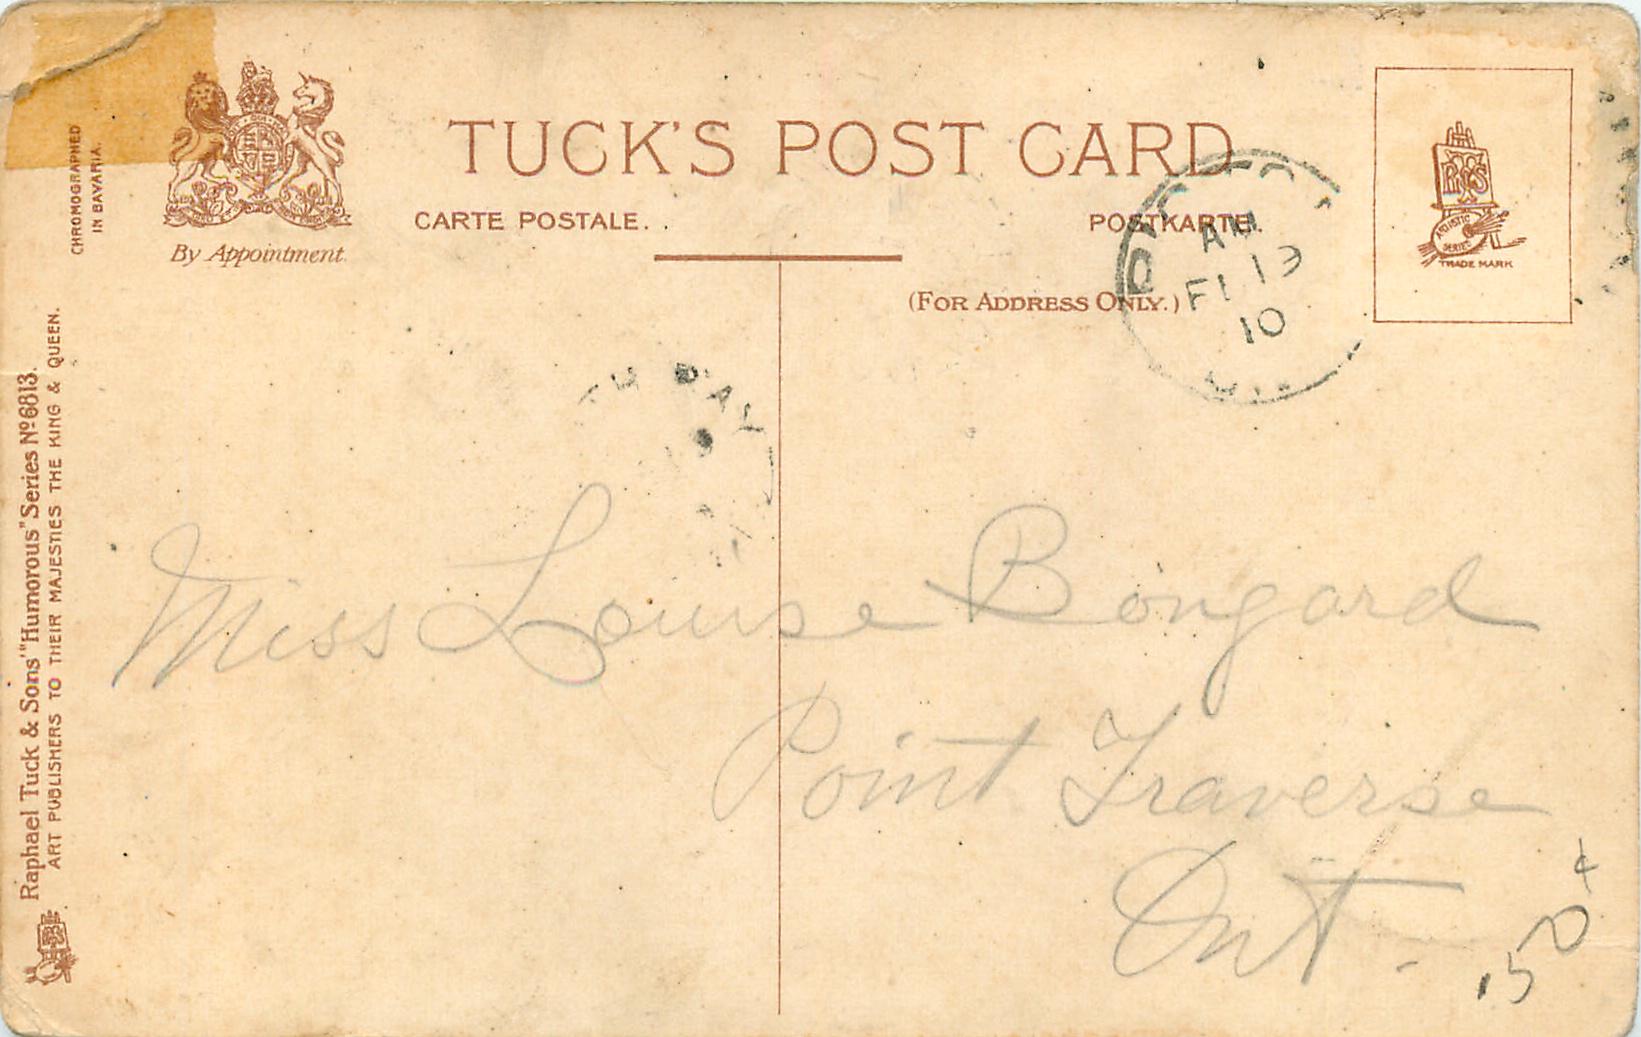 TUCK'S POST CARD
CARTE POSTALE.
POSTKARTE.
(FOR ADDRESS ONLY.)
By Appointment
CHROMOGRAPHED
IN BAVARIA.
Raphael Tuck & Sons' "Humorous" Series Nº 6813.
ART PUBLISHERS TO THEIR MAJESTIES THE KING & QUEEN.
ARTISTIC
SERIES
TRADE MARK
AM
10
Miss Louise Bongard
Point Traverse
Ont.